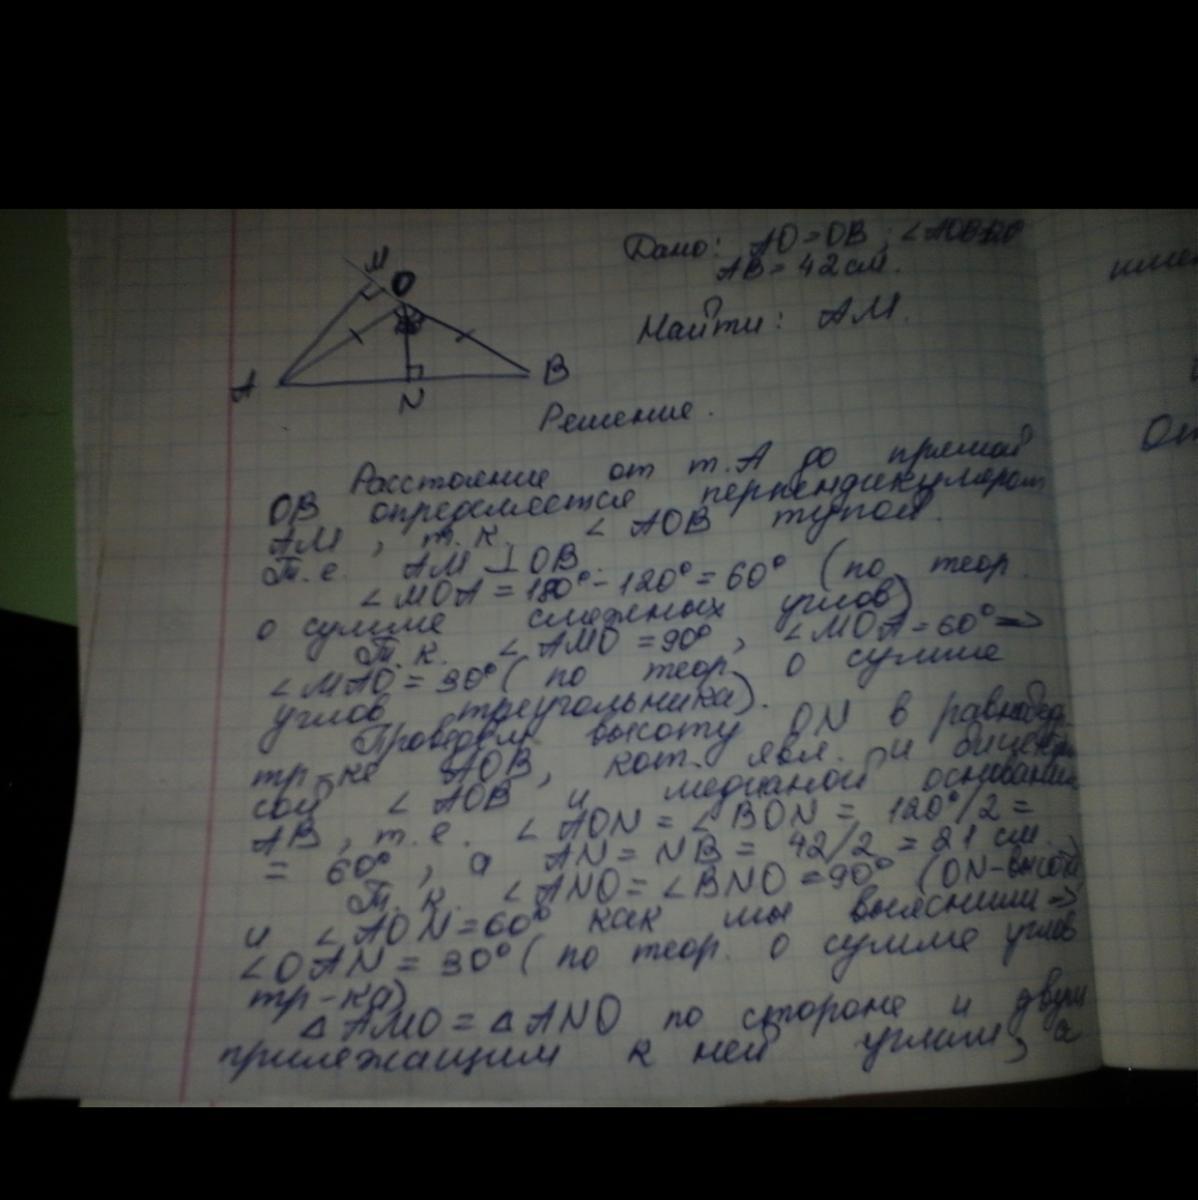 M
O
A
B
N
Дано: AO=OB; ∠AOB=120
AB=42 см.
Найти: AM.
Решение.
Расстояние от т.A до прямой
OB определяется перпендикуляром
AM, т.к. ∠AOB тупой.
Т.е. AM⊥OB.
∠MOA=180°-120°=60° (по теор.
о сумме смежных углов)
Т.к. ∠AMO=90°, ∠MOA=60°=>
∠MAO=30° (по теор. о сумме
углов треугольника).
Проведём высоту ON в равнобед.
тр-ке AOB, кот. явл. и биссектри
сой ∠AOB и медианой основания
AB, т.е. ∠AON=∠BON=120°/2=
=60°, а AN=NB=42/2=21 см.
Т.к. ∠ANO=∠BNO=90° (ON-высота)
и ∠AON=60° как мы выяснили=>
∠OAN=30° (по теор. о сумме углов
тр-ка)
△AMO=△ANO по стороне и двум
прилежащим к ней углам, а
От